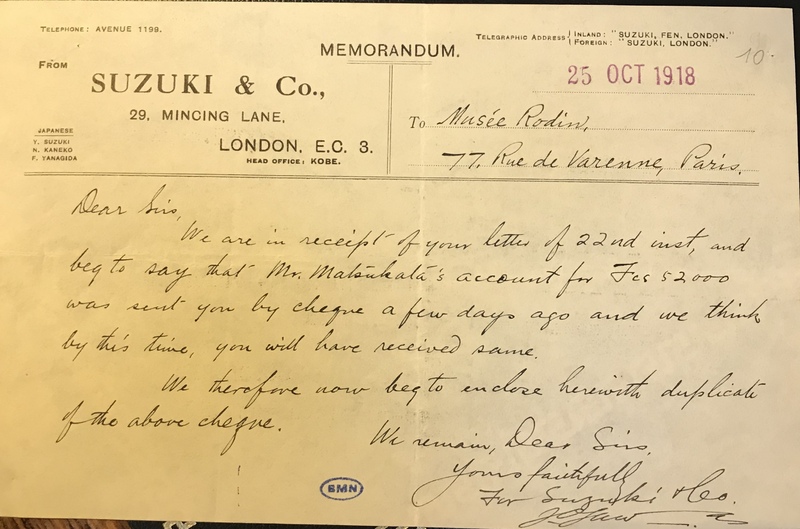 TELEPHONE: AVENUE 1199.
TELEGRAPHIC ADDRESS { INLAND: "SUZUKI, FEN, LONDON."
FOREIGN: "SUZUKI, LONDON."
10.
MEMORANDUM.
25 OCT 1918
FROM
SUZUKI & Co.,
29, MINCING LANE,
LONDON, E.C. 3.
HEAD OFFICE: KOBE.
JAPANESE
Y. SUZUKI
N. KANEKO
F. YANAGIDA
To Musée Rodin,
77, Rue de Varenne, Paris.
Dear Sirs,
We are in receipt of your letter of 22nd inst, and
beg to say that Mr. Matsukata's account for Fcs 52000
was sent you by cheque a few days ago and we think
by this time, you will have received same.
We therefore now beg to enclose herewith duplicate
of the above cheque.
We remain, Dear Sirs,
Yours faithfully
For Suzuki & Co.
BMN